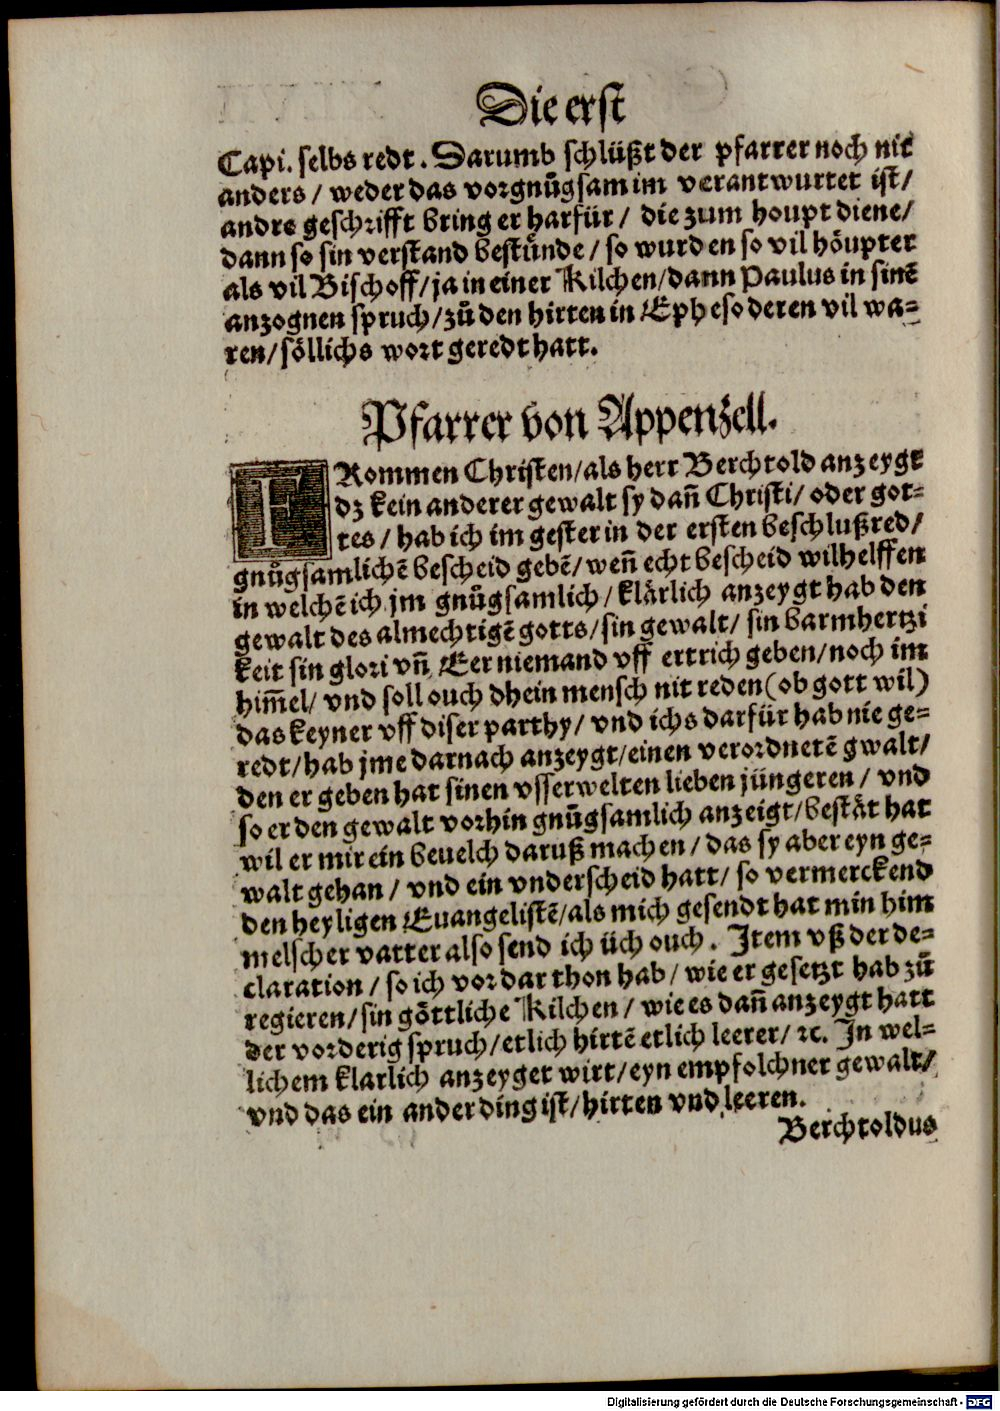 Die erst
Capi. selbs redt. Darumb schlüßt der pfarrer noch nit
anders / weder das vorgnůgsam im verantwurtet ist /
andre geschrifft bring er harfür / die zum houpt diene /
dann so sin verstand bestůnde / so wurden so vil höupter
als vil Bischoff / ja in einer Kilchen / dann Paulus in sinē
anzognen spruch / zů den hirten in Epheso deren vil wa-
ren / söllichs wort geredt hatt.
Pfarrer von Appenzell.
FRommen Christen / als herr Berchtold anzeygt
dz kein anderer gewalt sy dañ Christi / oder got-
tes / hab ich im gester in der ersten beschlußred /
gnůgsamlichē bescheid gebē / weñ echt bescheid wil helffen
in welchē ich jm gnůgsamlich / klärlich anzeygt hab den
gewalt des almechtigē gotts / sin gewalt / sin barmhertzi
keit sin glori vñ Eer niemand vff ertrich geben / noch im
him̄el / vnd soll ouch dhein mensch nit reden (ob gott wil)
das keyner vff diser parthy / vnd ichs darfür hab nie ge-
redt / hab jme darnach anzeygt / einen verordnetē gwalt /
den er geben hat sinen vsserwelten lieben jüngeren / vnd
so er den gewalt vorhin gnůgsamlich anzeigt / bestät hat
wil er mir ein beuelch daruß machen / das sy aber eyn ge-
walt gehan / vnd ein vnderscheid hatt / so vermerckend
den heyligen Euangelistē / als mich gesendt hat min him
melscher vatter also send ich üch ouch. Item vß der de-
claration / so ich vor dar thon hab / wie er gesetzt hab zů
regieren / sin göttliche Kilchen / wie es dañ anzeygt hatt
der vorderig spruch / etlich hirtē etlich leerer / ꝛc. In wel-
lichem klarlich anzeyget wirt / eyn empfolchner gewalt /
vnd das ein ander ding ist / hirten vnd leeren.
Berchtoldus
Digitalisierung gefördert durch die Deutsche Forschungsgemeinschaft - DFG